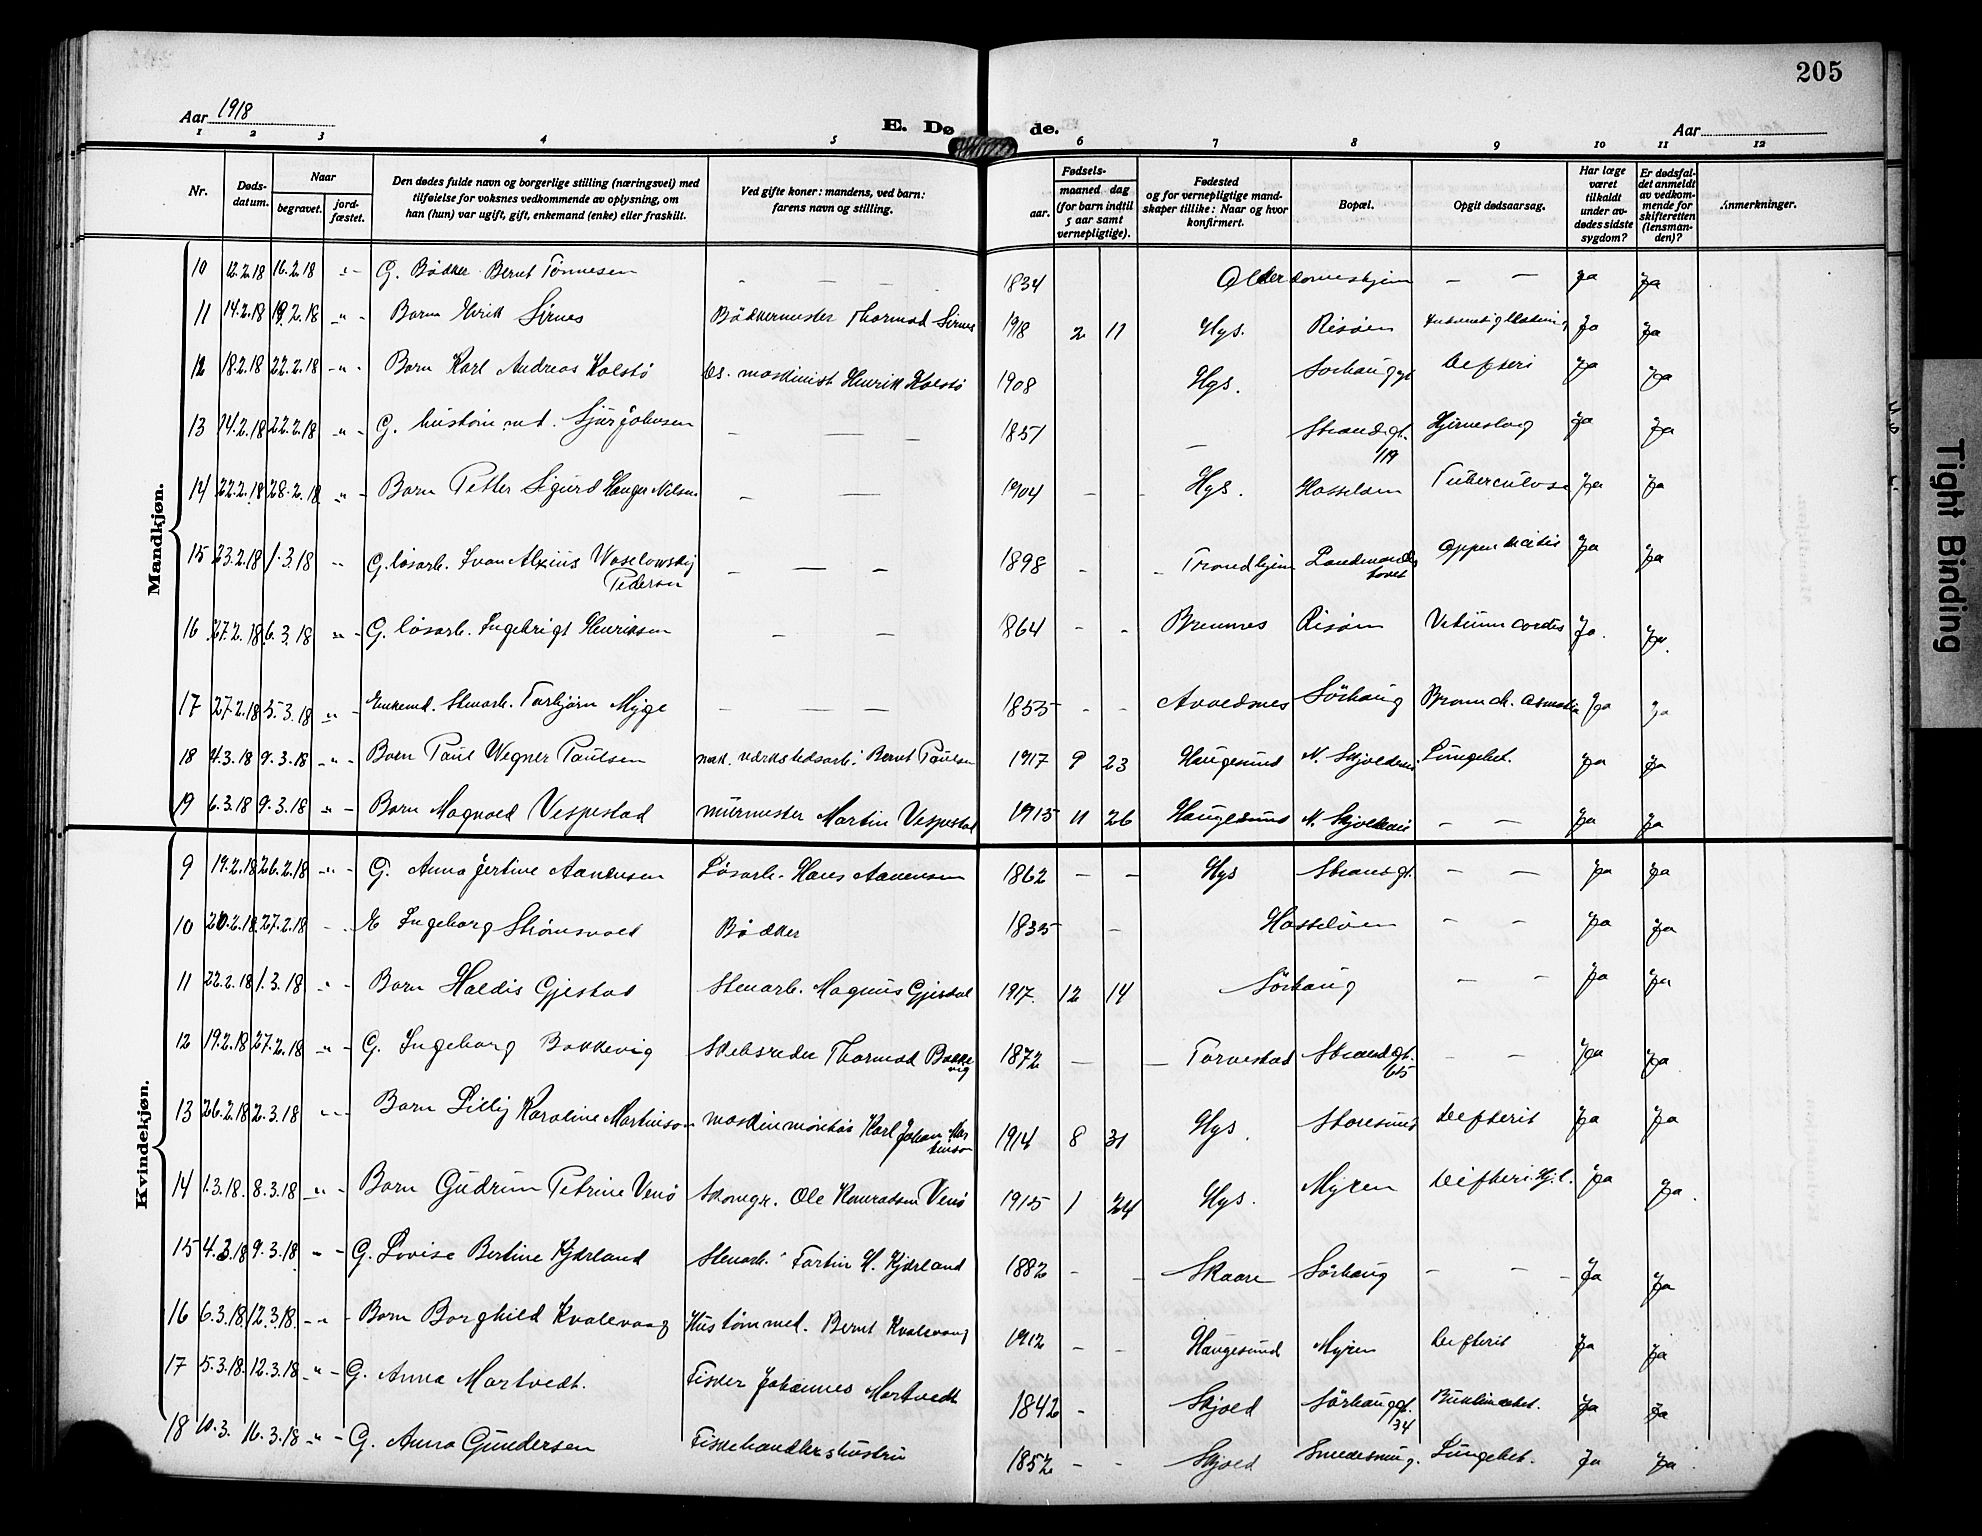 205
Aar 1918
E. Dø de.
Aar
1 2 3 4 5 6 7 8 9 10 11 12
Nr.
Døds-
datum.
Naar
begravet.
jord-
fæstet.
Den dødes fulde navn og borgerlige stilling (næringsvei) med
tilføielse for voksnes vedkommende av oplysning, om
han (hun) var ugift, gift, enkemand (enke) eller fraskilt.
Ved gifte koner: mandens, ved barn:
farens navn og stilling.
Fødsels-
aar.
maaned dag
(for barn indtil
5 aar samt
vernepligtige).
Fødested
og for vernepligtige mand-
skaper tillike: Naar og hvor
konfirmert.
Bopæl.
Opgit dødsaarsag.
Har læge
været
tilkaldt
under av-
dødes sidste
sygdom?
Er dødsfal-
det anmeldt
av vedkom-
mende for
skifteretten
(lensman-
den)?
Anmerkninger.
Mandkjøn.
10 12.2.18 16.2.18 -"- G. Bødker Bernt Tønnesen — — — 1834 Alderdomshjem — — Ja Ja
11 14.2.18 19.2.18 -"- Barn Eirik Sirnes Bødkermester Thormod Sirnes 1918 2 11 Hgs. Risøen Ja Ja
12 18.2.18 22.2.18 -"- Barn Karl Andreas Kolstø maskinist Henrik Kolstø 1908 Hgs. Sørhauggt Defteri Ja Ja
13 14.2.18 22.2.18 -"- G. hustømmd. Sjur Johnsen — — — 1851 — Strandgt. 119 Hjerneslag Ja Ja
14 22.2.18 28.2.18 -"- Barn Petter Sigurd Hauger Nilsen — — 1904 - - Hgs. Hasseløen Tuberculose Ja Ja
15 23.2.18 1.3.18 -"- G. løsarb. Ivan Alxius Waselowskij
Pedersen — — — 1898 - - Trondhjem Appendicitis Ja Ja
16 27.2.18 6.3.18 -"- G. løsarb. Ingebrigt Henriksen — — 1864 - - Bremnes Risøen Vitium cordis Ja. Ja.
17 27.2.18 5.3.18 -"- Enkemd. Stenarb. Torbjørn Myge — — — 1855 - - Avaldsnes Sørhaug Bronch. asmatia Ja Ja
18 4.3.18 9.3.18 -"- Barn Paul Wegner Paulsen mek. værkstedsarb. Bernt Paulsen 1917 9 23 Haugesund N. Skjoldens Lungebet. Ja Ja
19 6.3.18 9.3.18 -"- Barn Magnvald Vespestad murmester Martin Vespestad 1915 11 26 Haugesund N. Skjoldens — — Ja Ja
Kvindekjøn.
9 19.2.18 26.2.18 -"- G. Anna Jertine Aanensen Løsarb. Hans Aanensen 1862 — — Hgs Strandgt. — — Ja Ja
10 20.2.18 27.2.18 - - E Ingeborg Strømsvold Bødker 1835 — Hasseløen — — Ja Ja
11 22.2.18 1.3.18 -"- Barn Haldis Gjestal Stenarb. Magnus Gjestal 1917. 12 14 Sørhaug — — Ja Ja
12 19.2.18 27.2.18 -"- G. Ingeborg Bakkevig Skibsreder Thormod Bakke
vig 1872 — — Torvestad Strandgt. 165 - — Ja Ja
13 26.2.18 2.3.18 -"- Barn Lilly Karoline Martinson maskinmontør Karl Johan Mar
tinson 1914 8 31 Hgs. Storesund Defterit Ja Ja
14 1.3.18. 8.3.18 -"- Barn Gudrun Petrine Venø Skomgr. Ole Konradsen Venø 1915 1 24 Hgs. Myren Ja Ja.
15 4.3.18 9.3.18 -"- G. Lovise Bertine Kjærland Stenarb. H. Kjærland 1882 - — Skaare Sørhaug — — Ja Ja
16 6.3.18. 12.3.18. -"- Barn Borghild Kvalevaag Hustømmed. Bernt Kvalevaag 1912 — - Haugesund Myren Defterit Ja Ja
17 5.3.18. 12.3.18 -"- G. Anna Mortvedt. Fisker Johannes Mortvedt 1842 - Skjold Sørhauggt. 34 Ja Ja
18 10.3. 16.3.18 -"- G. Anna Gundersen Fiskehandlershustru 1852 - - Skjold Lungebet. Ja Ja
Tight Binding